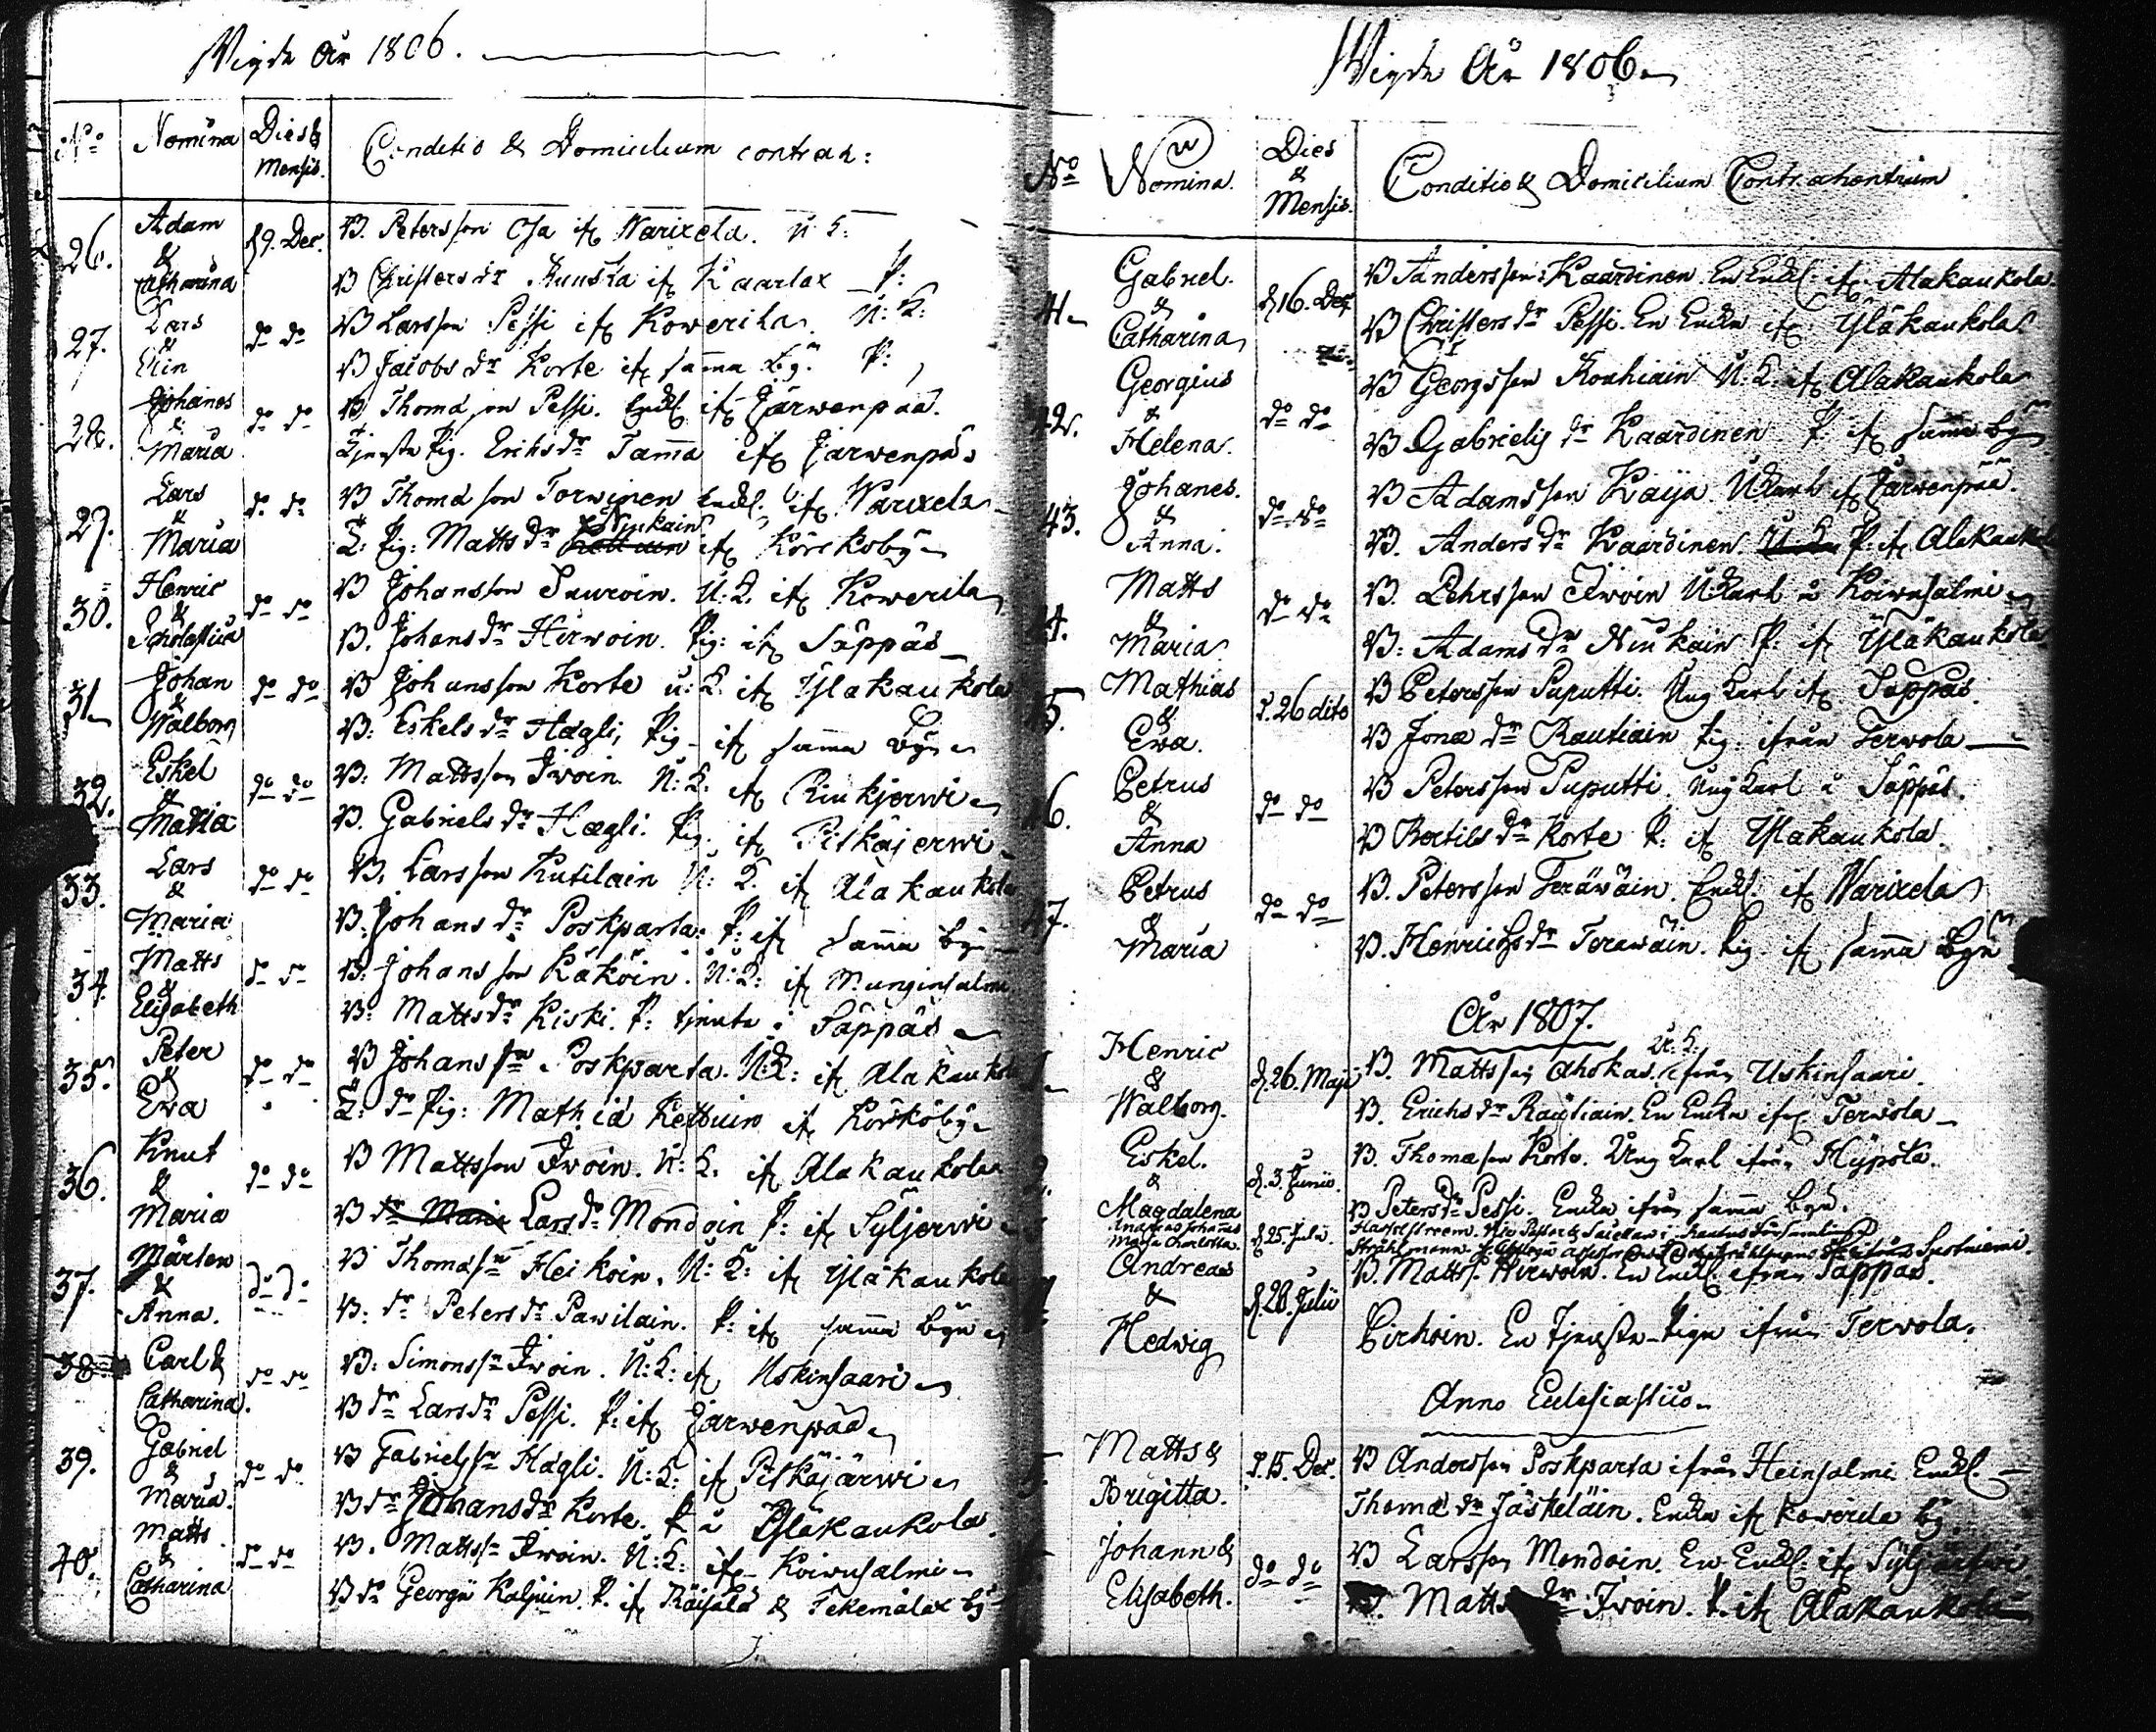 Vigde År 1806.
No Nomina Dies & Mensis. Conditio & Domicilium contrah:
26. Adam & Catharina d 9. Dec.
B. Petersson Oja if. Warixela. U. K:
B Christersdr Kuuska if Kaarlax P:
27. Lars & Elin do do
B Larsson Pessi if Kowerila. U: K:
B Jacobs dr Korte if samma by. P:
28. Johanes & Maria do do
B Thomæ son Pessi. Enkl. if Järwenpää.
Tjenste Pig. Erichs dr Tamma if Järwenpää
29. Lars & Maria do do
B Thomæ son Torwinen Enkl. if Warixela
T: Pig: Matts dr Niukain if Körskoby
30. Henric & Scholastica do do
B Johansson Suuroin. U. K. if Kowerila
B. Johans dr Hirwoin. Pig: if Säppäs
31. Johan & Walborg do do
B Johansson Korte U: K: if Yläkaukola
B: Eskels dr Hægli, Pig if samma Byn
32. Eskel & Maria do do
B: Mattsson Iwoin U: K: if Riukjerwi
B. Gabriels dr Hægli. Pig. if Pitkäjerwi
33. Lars & Maria do do
B. Larsson Kutilain U: K. if Alakaukola
B: Johans dr Poskparta: P: if samma byn
34. Matts & Elisabeth do do
B: Johansson Käköin. U: K: if Munginsalmi
B: Matts dr Kiski. P: tjenste i Säppäs
35. Peter & Ewa do do
B Johans sn Poskparta. U: K: if Alakaukola
T: do Pig: Mathiæ Kettuin if Körsköby
36. Knut & Maria do do
B Mattsson Iwoin. U: K. if Alakaukola
B dr Lars dr Mondoin P: if Syljerwi
37. Mårten & Anna. do do
B Thomæ sn Heikoin. U: K: if Yläkaukola
B: dr Peters dr Pawilain. P: if samma byn
38 Carl & Catharina. do do
B: Simons sn Iwoin. U: K: if Uskinsaari
B dr Lars dr Pessi. P: if Järwenpää
39. Gabriel & Maria. do do
B Gabriels sn Hägli. U: K: if Pitkäjärwi
B dr Johans dr Korte. P i Yläkaukola
40. Matts & Catharina do do
B. Matts sn Iwoin. U: K: if Koiwusalmi
B dr Georgii Kaljuin. P. if Räisälä & Tekemälax by
Vigde År 1806
No Nomina. Dies & Mensis. Conditio & Domicilium Contrahentium
41. Gabriel & Catharina d 16. Dec
B Andersson Kaardinen. En Enkl. if Alakaukola
B Christers dr Pessi. En Enka if Yläkaukola
42. Georgius & Helena. do do
B Georgsson Kouhiain U: K. if Alakaukola
B Gabrielis dr Kaardinen P: if samma by
43. Johanes. & Anna. do do
B Adamsson Kaija. U Karl if Järwenpää.
B. Anders dr Kaardinen. P: if Alakaukola
44. Matts & Maria do do
B. Pehrsson Iwoin U:Karl i Koiwusalmi
B: Adams dr Niukain P: if Yläkaukola
45. Mathias & Ewa. d. 26 dito
B Petersson Puputti. Ung Karl if. Säppäs
B Jonæ dr Rautiain Pig: ifrån Terwola
46. Petrus & Anna do do
B Petersson Puputti. Ung Karl i Säppäs.
B Bertils dr Korte P: if Yläkaukola
47. Petrus & Maria do do
B. Petersson Teräwäin. Enkl. if Warixela
B. Henrichs dr Teräwäin. Pig. if samma Byn
År 1807.
Henric & Walborg. d. 26. Maji
B. Mattsson Ahokas. U: K: ifrån Uskinsaari.
B. Erichs dr Rautiain. En Enka if Terwola
Eskel. & Magdalena d. 3. Junii.
B. Thomæson Korte. Ung Karl ifrån Hypölä.
B Peters dr Pessi. Enka ifrån samma Byn.
Andreas Johannes Maria Charlotta. d 25. Julii.
Andreas & Hedwig d. 28. Julii
B. Matts s. Hirwoin. En Enkl. ifrån Säppäs.
Pirhoin. En Tjenste-Piga ifrån Terwola.
Anno Eclesiastico.
Matts & Brigitta. d. 15. Dec.
B Andersson Poskparta ifrån Heinsalmi Enkl.
Thomæ dr Jäskeläin. Enka if Kowerila by
Johann & Elisabeth. do do
B Larsson Mondoin. En Enkl. if Syljärwi
B. Matts dr Iwoin. P. if Alakaukola